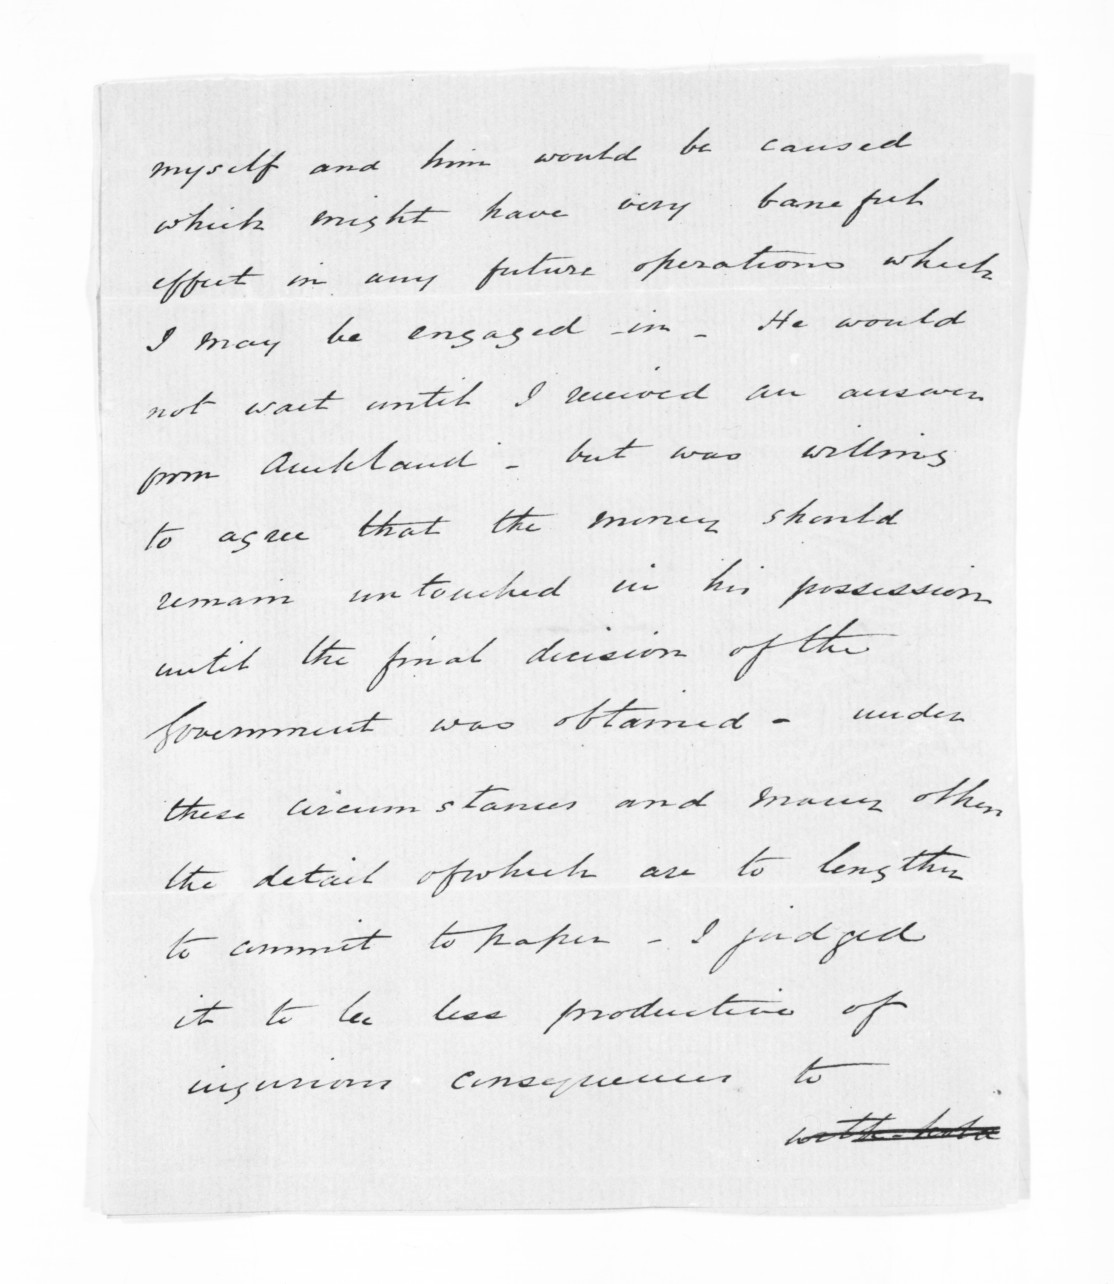 myself and him would be caused
which might have very baneful
effect in any future operations which
I may be engaged in - He would
not wait until I received an answer
from Auckland - but was willing
to agree that the money should
remain untouched in his possession
until the final decision of the
Government was obtained - under
these circumstances and many other
the detail of which are to lengthy
to commit to paper - I judged
it to be less productive of
injurious consequences to
with-hold